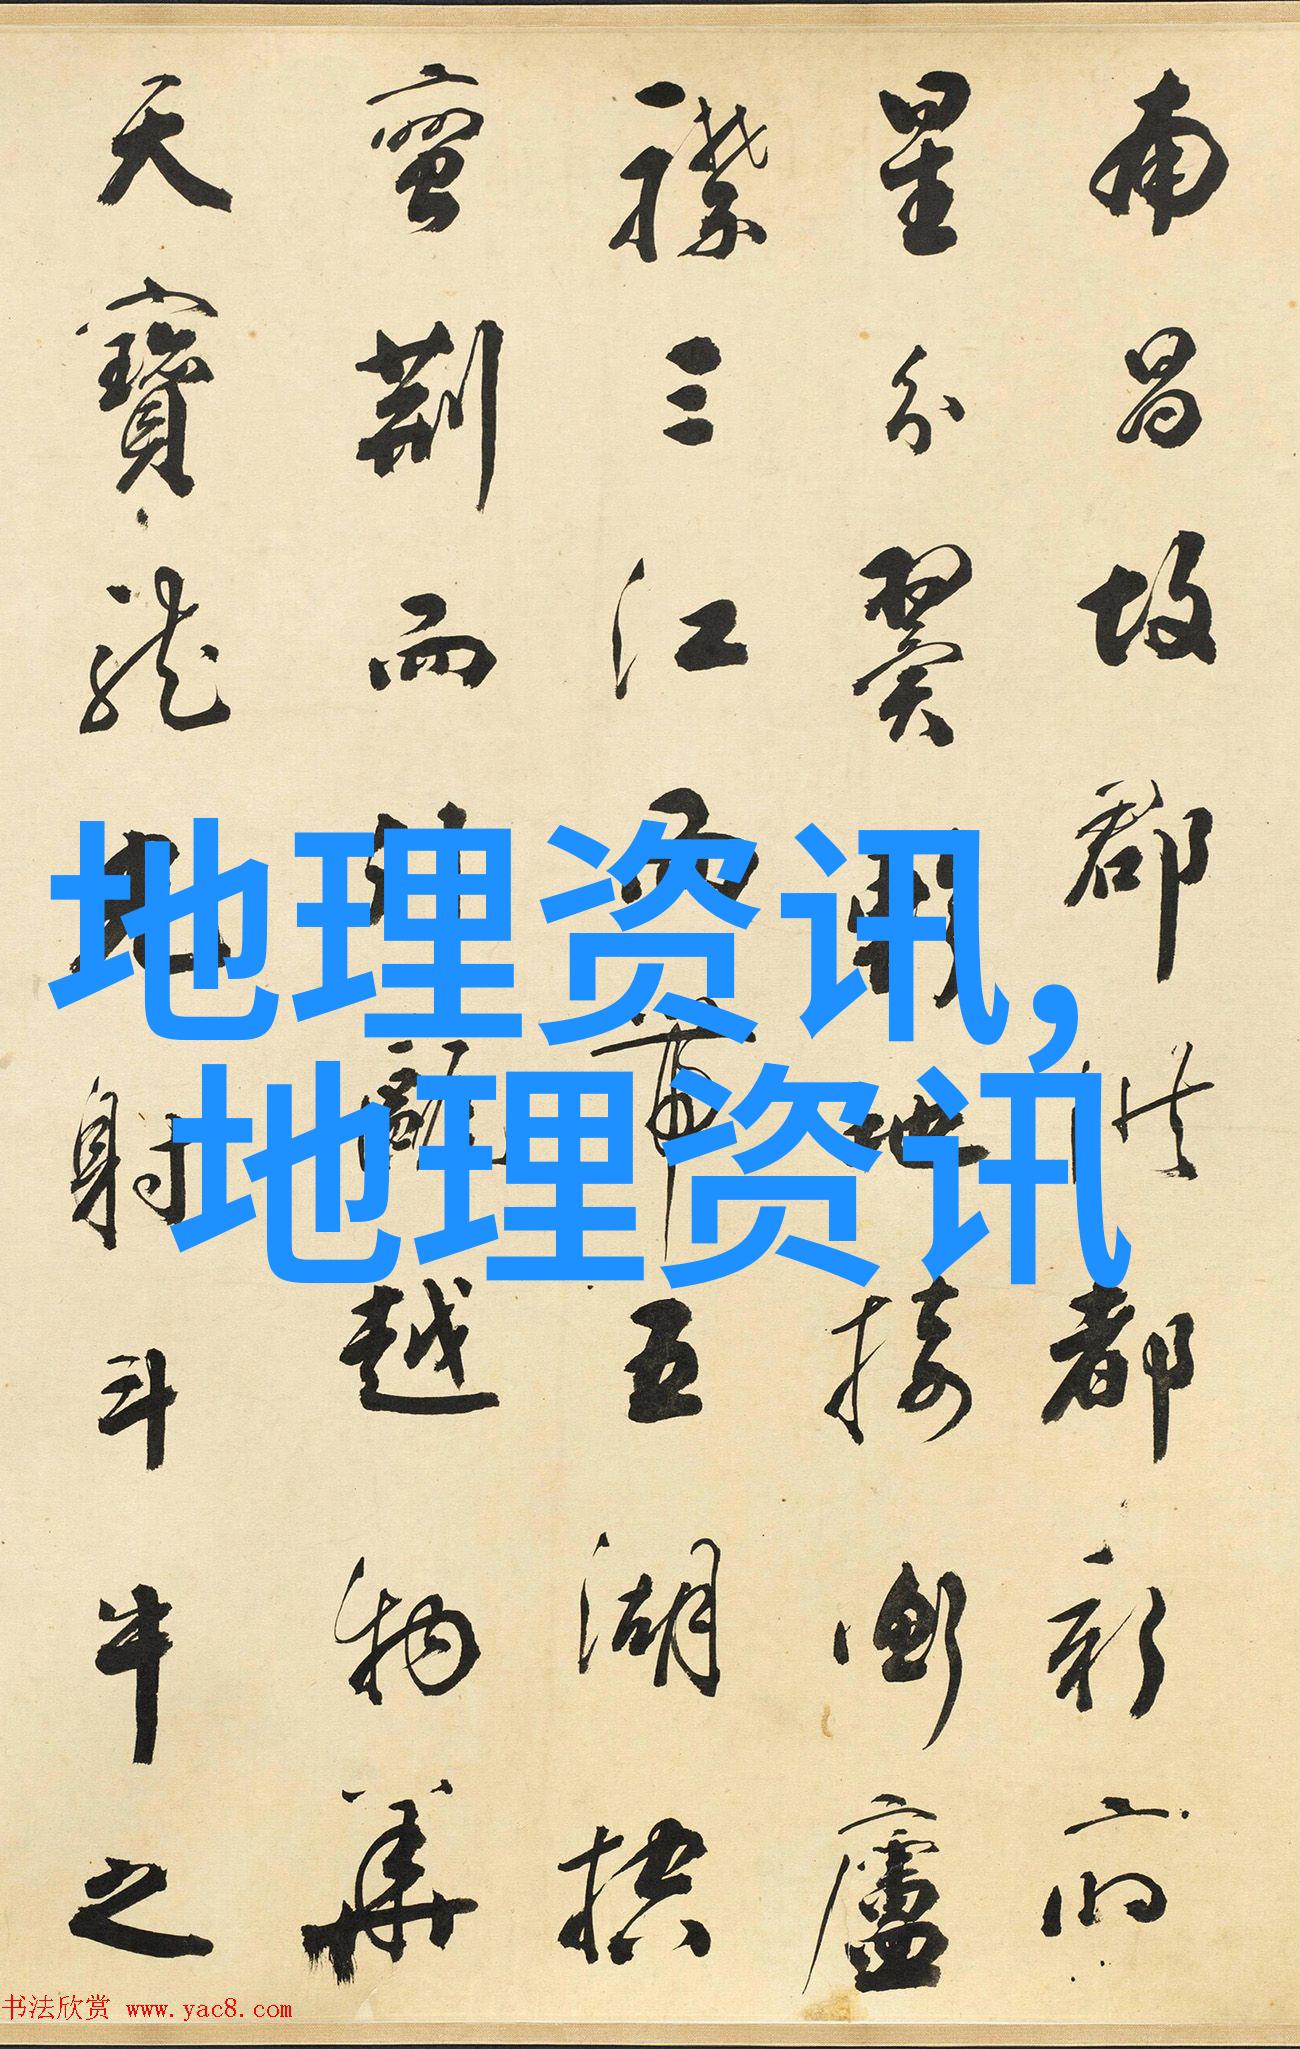 南昌故郡洪都新府
星分翼軫地接衡廬
襟三江而帶五湖控
蠻荆而甌越物華
天寶龍光射斗牛之
地理资讯,
地理资讯
书法欣赏 www.yac8.com